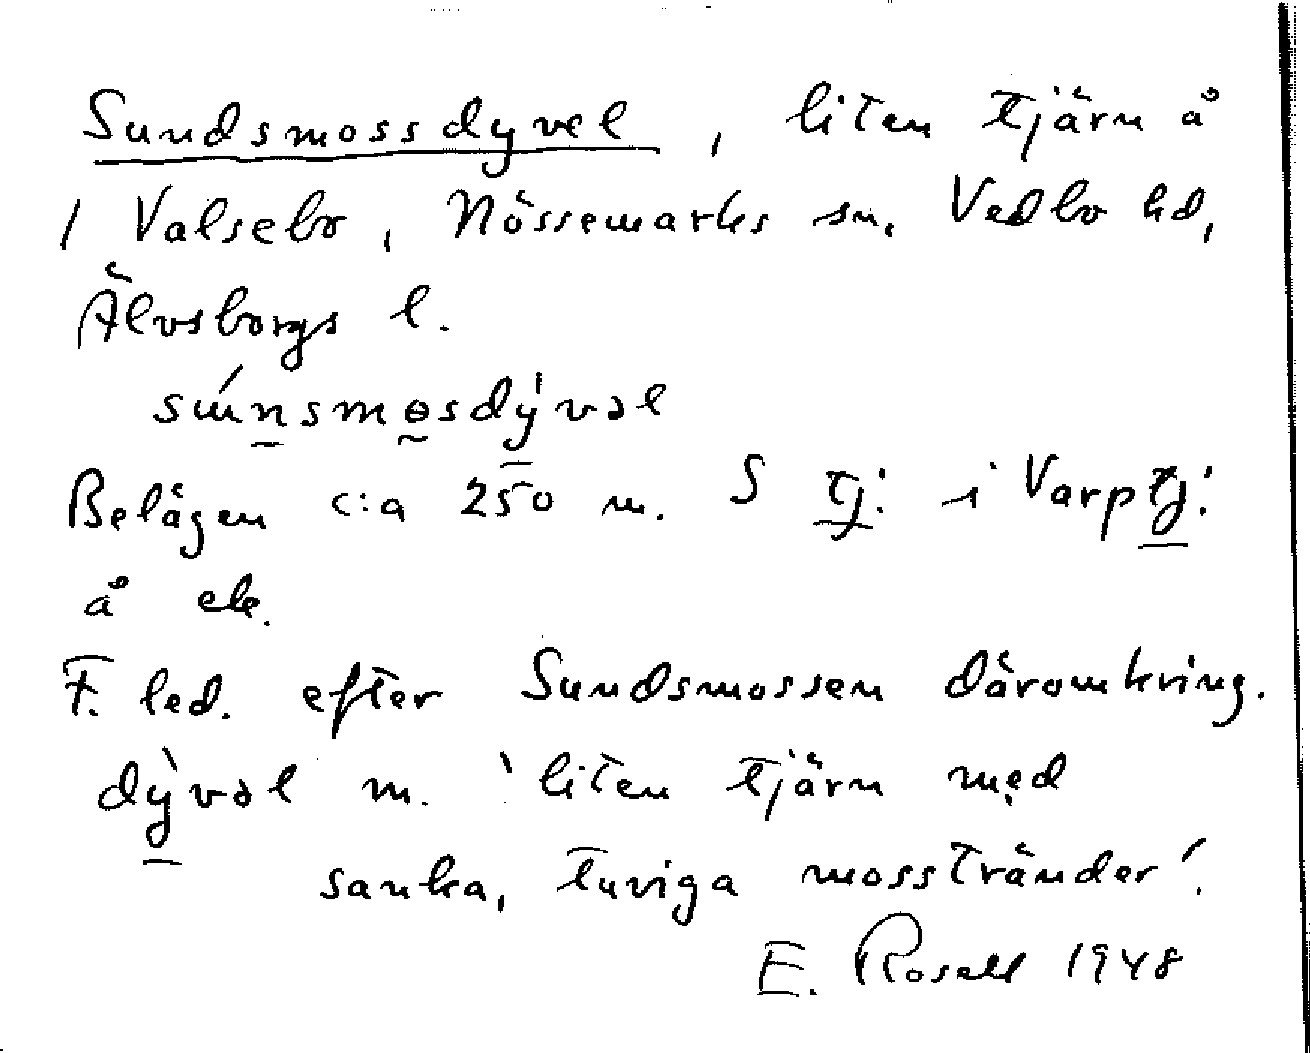 Sundsmossdyvel, liten tjärn å
1 Valsebo, Nössemarks sn, Vedbo hd,
Älvsborgs l.
súnsmɵsdỳvəl
Belägen c:a 250 m. S tj: i Varptj:
å ek.
F. led. efter Sundsmossen däromkring.
dỳvəl m. 'liten tjärn med
sanka, tuviga mosstränder'.
E. Rosell 1948